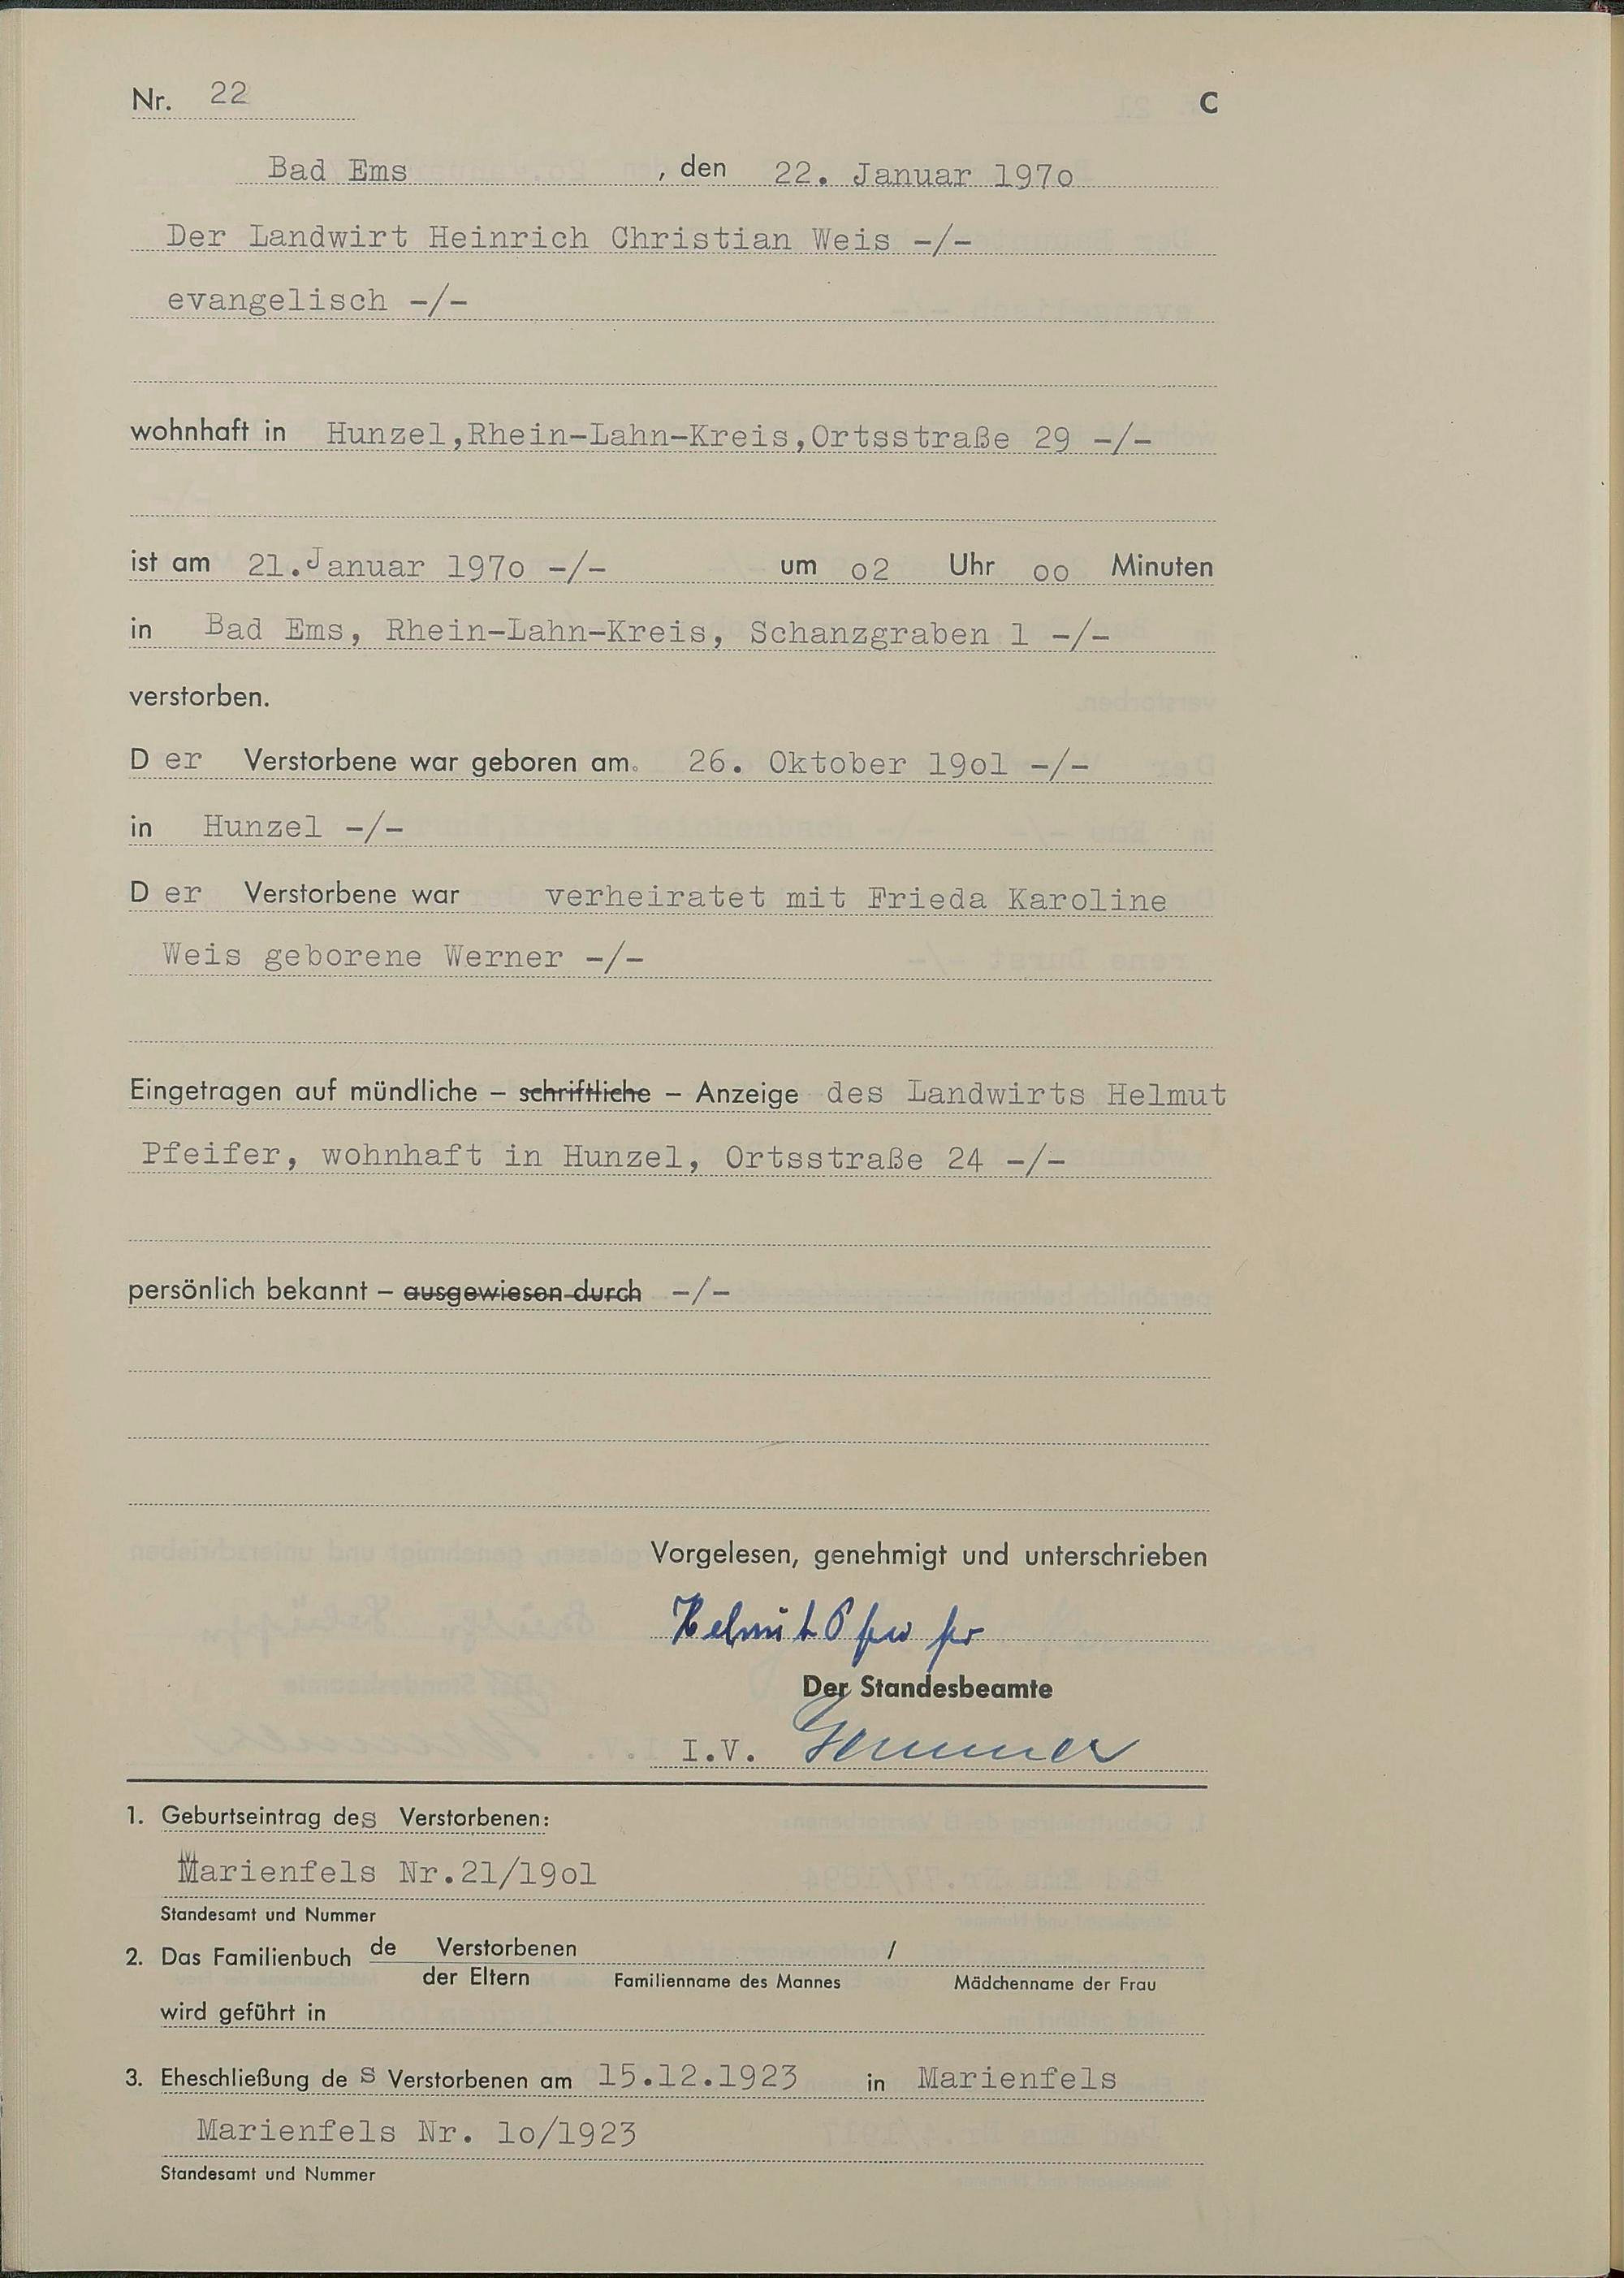 Nr. 22 C
Bad Ems , den 22. Januar 197o
Der Landwirt Heinrich Christian Weis -/-
evangelisch -/-
wohnhaft in Hunzel,Rhein-Lahn-Kreis,Ortsstraße 29 -/-
ist am 21.Januar 197o -/- um o2 Uhr oo Minuten
in Bad Ems, Rhein-Lahn-Kreis, Schanzgraben 1 -/-
verstorben.
D er Verstorbene war geboren am. 26. Oktober 19o1 -/-
in Hunzel -/-
D er Verstorbene war verheiratet mit Frieda Karoline
Weis geborene Werner -/-
Eingetragen auf mündliche – schriftliche – Anzeige des Landwirts Helmut
Pfeifer, wohnhaft in Hunzel, Ortsstraße 24 -/-
persönlich bekannt – ausgewiesen durch -/-
Vorgelesen, genehmigt und unterschrieben
Helmut Pfeifer
Der Standesbeamte
I.V.
1. Geburtseintrag des Verstorbenen:
Marienfels Nr.21/19o1
Standesamt und Nummer
2. Das Familienbuch de Verstorbenen /
der Eltern Familienname des Mannes Mädchenname der Frau
wird geführt in
3. Eheschließung de s Verstorbenen am 15.12.1923 in Marienfels
Marienfels Nr. 1o/1923
Standesamt und Nummer